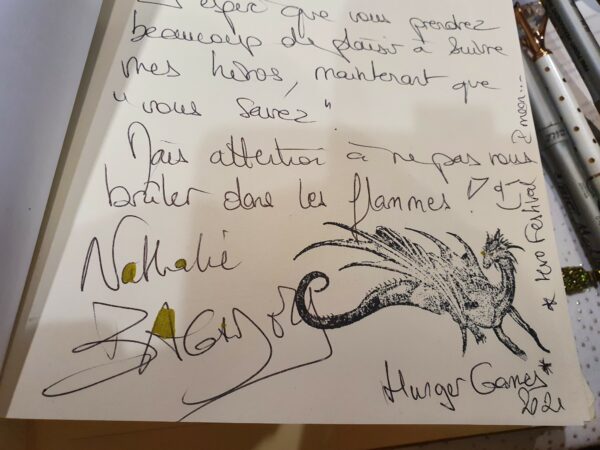 J'espère que vous prendrez
beaucoup de plaisir à suivre
mes héros, maintenant que
"vous savez".
Mais attention à ne pas vous
brûler dans les flammes !
Nathalie
Hunger Games
2021
* Festival